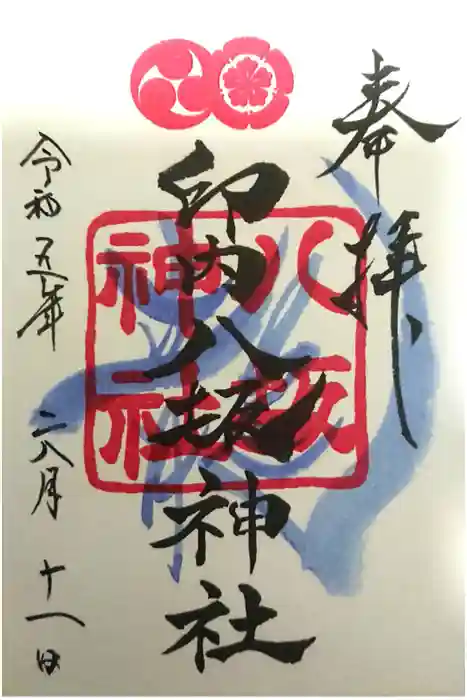 奉拝
印内八坂神社
八坂
神社
令和五年 六月 十一日